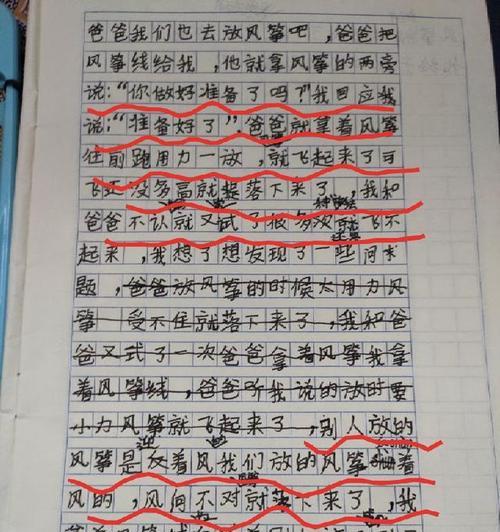 爸爸我们也去放风筝吧，爸爸把
风筝线给我，他就拿风筝的两旁
说：“你做好准备了吗？”我回应我
说：“准备好了”。爸爸就拿着风筝
往前跑用力一放，就飞起来了可
飞还没多高就落下来了，我和
爸爸不认就又试了很多次飞不
起来，我想了想发现了一些问木
题，爸爸放风筝的时候太用力风
筝受不住就落下来了，我和爸
爸又式了一次爸爸拿着风筝我拿
着风筝线，爸爸听我说的放时要
小力风筝就飞起来了，别人放的
风筝是反着风我们放的风筝着
风的，风向不对就下来了，我